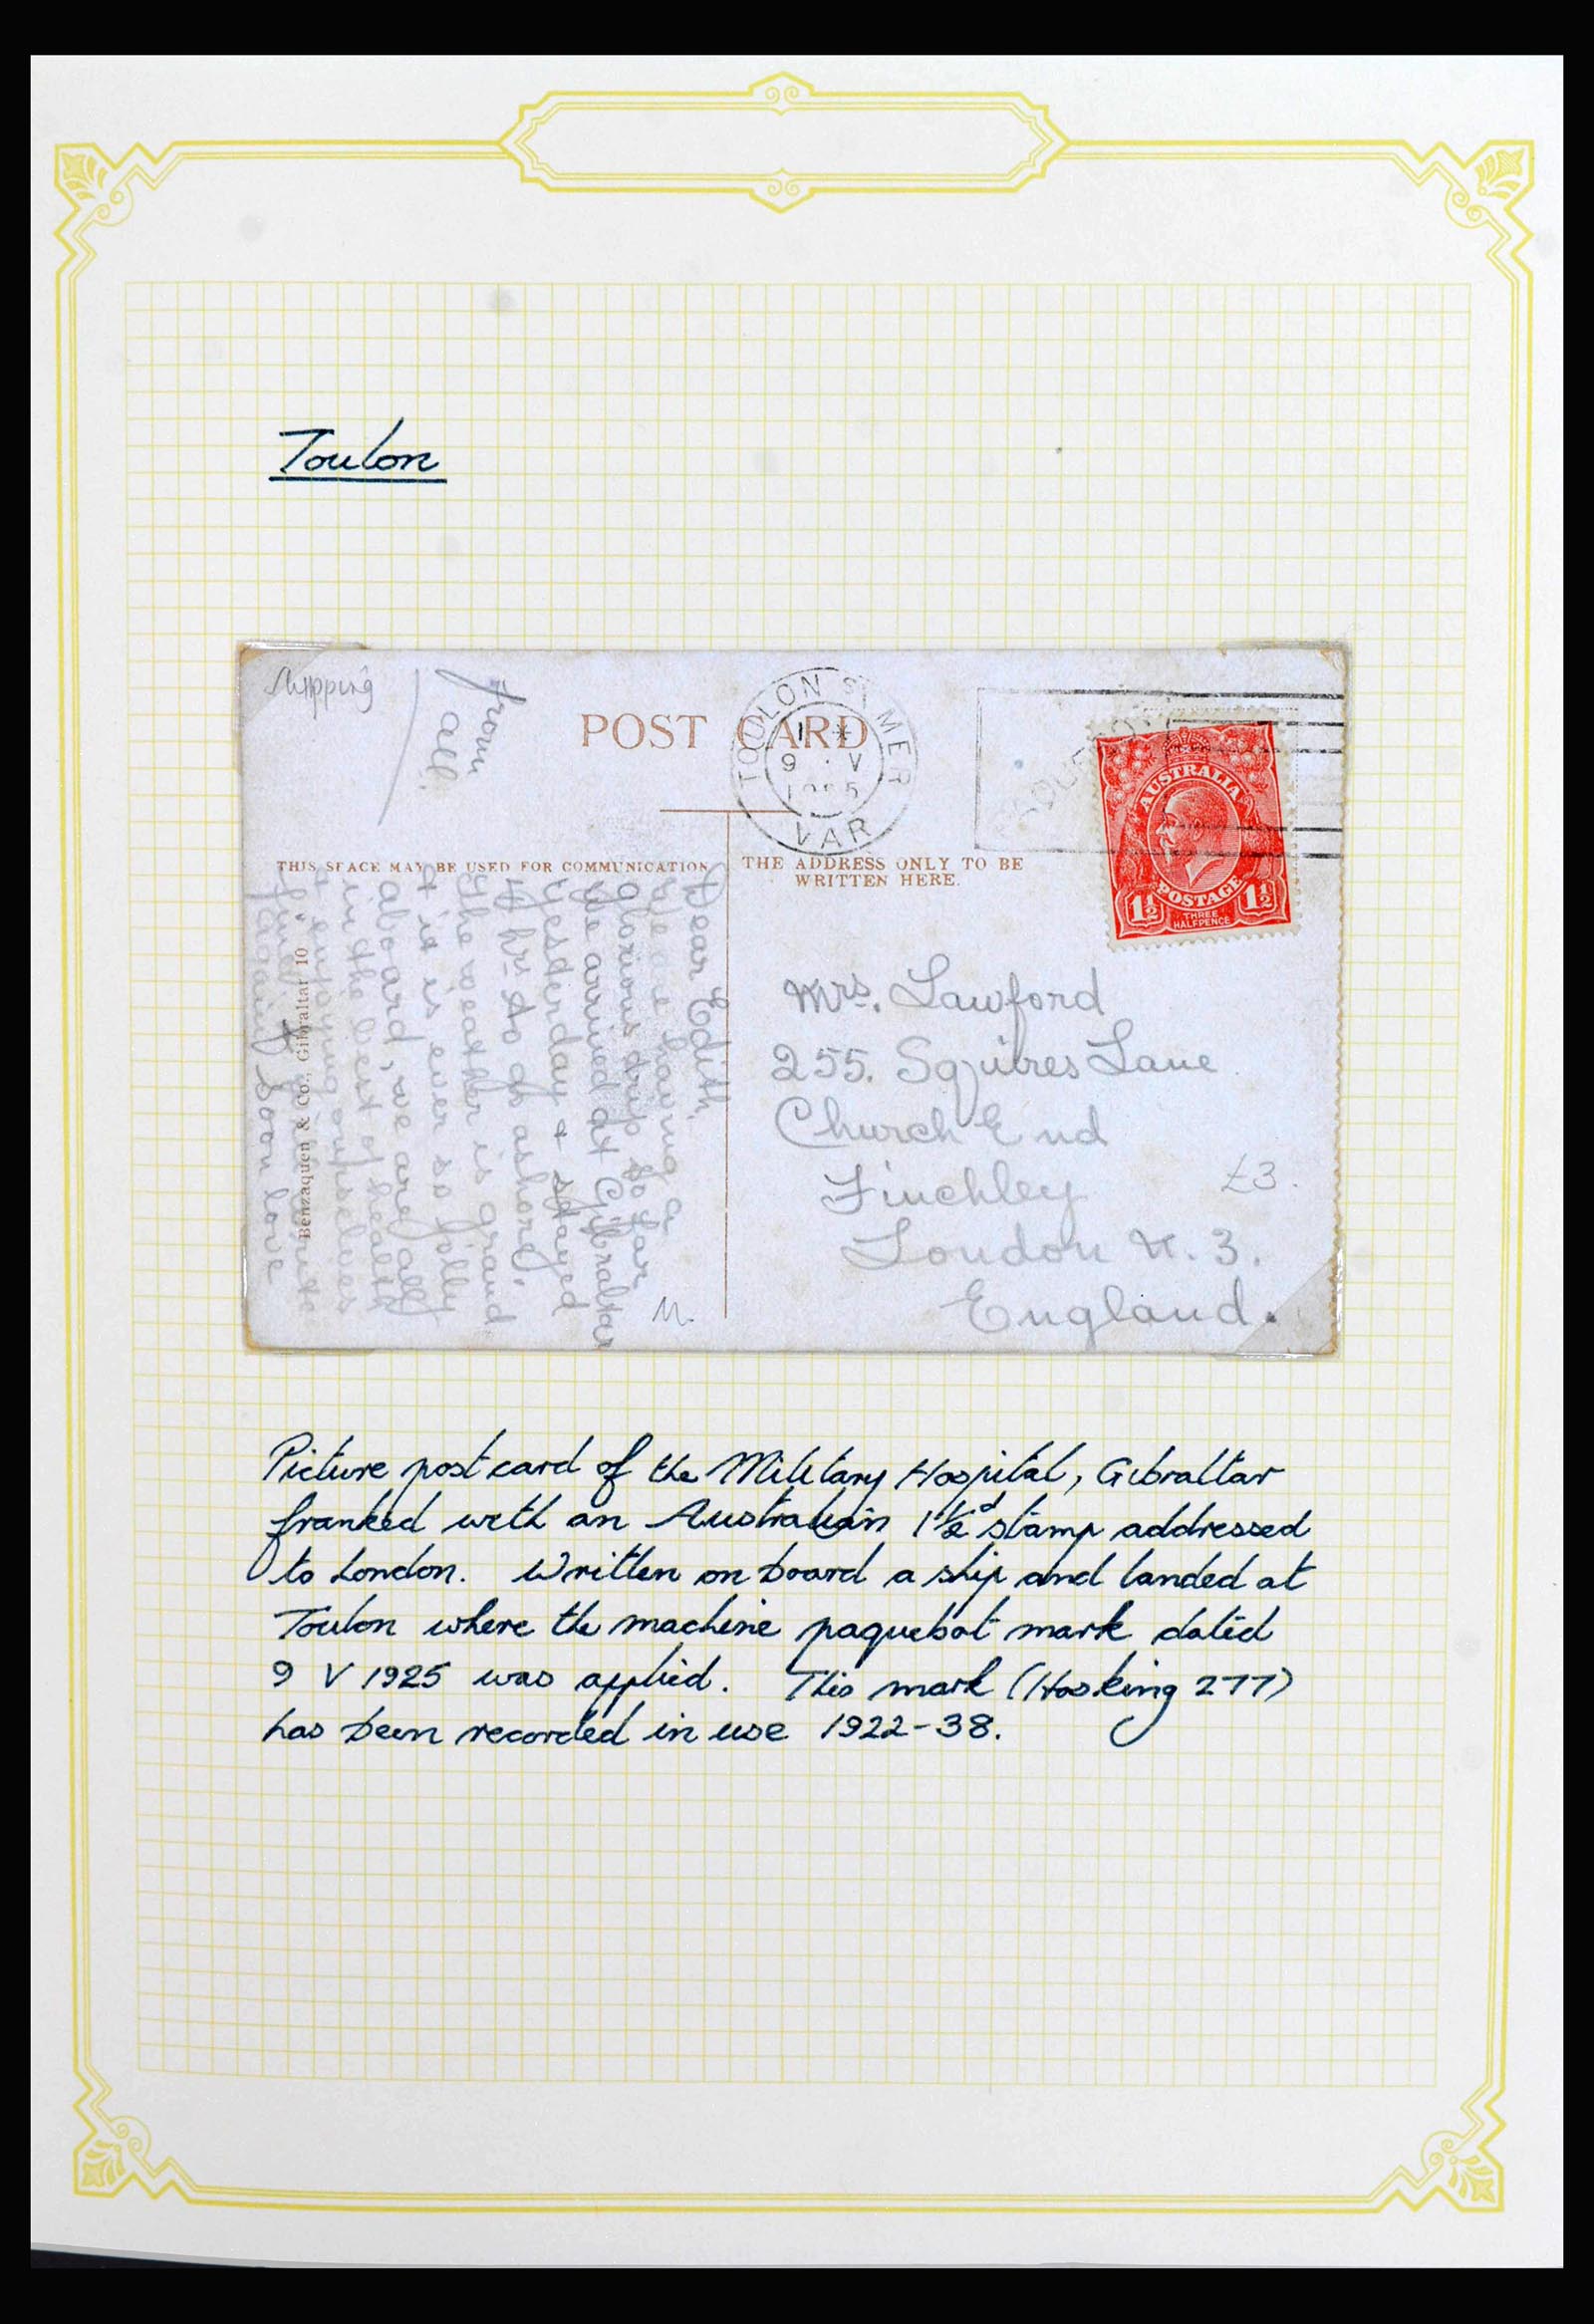 Toulon
Shipping
from
all
POST CARD
TOULON S MER
1 *
9 · V
19 5
VAR
PAQUEBOT
AUSTRALIA
POSTAGE
1½ THREE HALFPENCE 1½
THIS SPACE MAY BE USED FOR COMMUNICATION
THE ADDRESS ONLY TO BE
WRITTEN HERE.
Dear Edith,
We are having a
glorious trip so far
We arrived at Gibraltar
yesterday & stayed
4 hrs to go ashore,
The weather is grand
& it is ever so jolly
aboard, we are all
in the best of health
& enjoying ourselves
again soon love
Benzaquen & Co., Gibraltar 10
Mrs. Lawford
255. Squires Lane
Church End
Finchley
London N. 3.
England.
£3.
M.
Picture post card of the Military Hospital, Gibraltar
franked with an Australian 1½d stamp addressed
to London. Written on board a ship and landed at
Toulon where the machine paquebot mark dated
9 V 1925 was applied. This mark (Hosking 277)
has been recorded in use 1922-38.